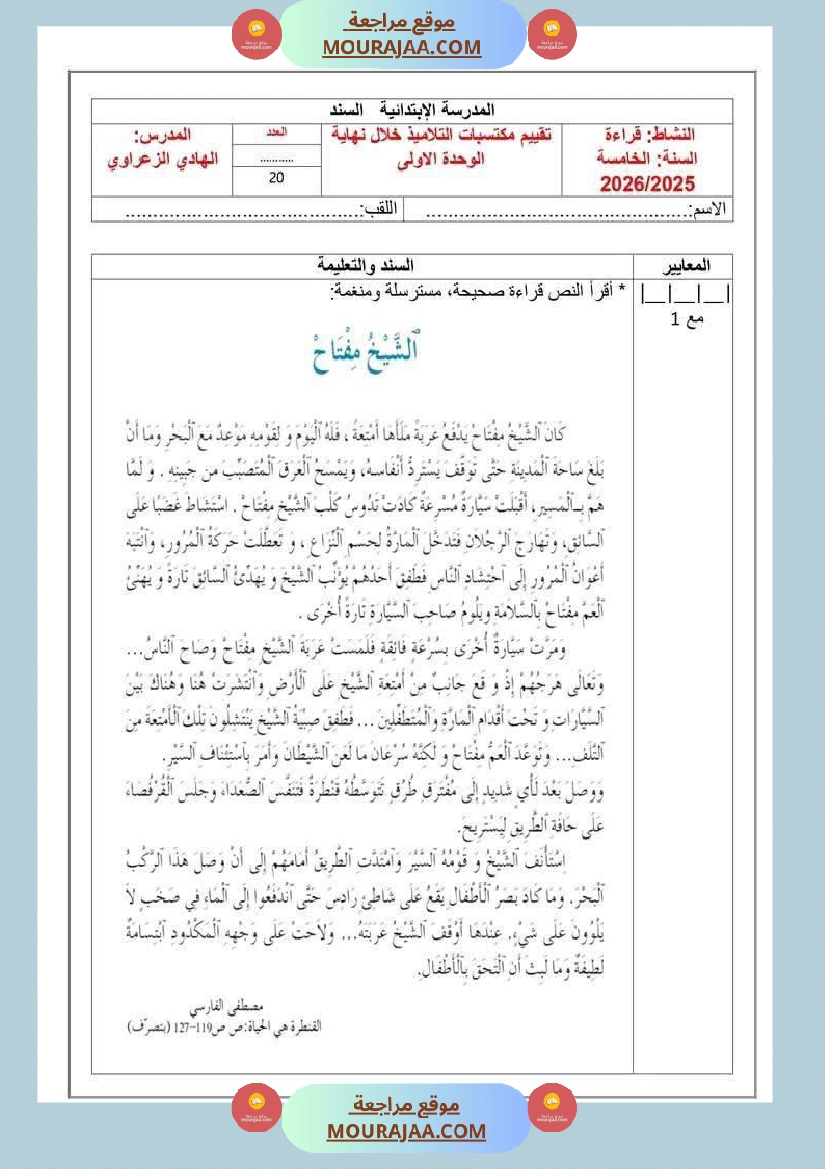 موقع مراجعة
MOURAJAA.COM
المدرسة الإبتدائية السند
النشاط: قراءة
السنة: الخامسة
2026/2025
تقييم مكتسبات التلاميذ خلال نهاية
الوحدة الاولى
العدد
...........
20
المدرس:
الهادي الزعراوي
الاسم:...............................................
اللقب:..........................................
المعايير
السند والتعليمة
|__|__|__|
مع 1
* أقرأ النص قراءة صحيحة، مسترسلة ومنغمة:
ٱلشَّيْخُ مِفْتَاحْ
كَانَ ٱلشَّيْخُ مِفْتَاحْ يَدْفَعُ عَرَبَةً مَلَأَهَا أَمْتِعَةً ، فَلَهُ ٱلْيَوْمَ وَ لِقَوْمِهِ مَوْعِدٌ مَعَ ٱلْبَحْرِ وَمَا أَنْ
بَلَغَ سَاحَةَ ٱلْمَدِينَةِ حَتَّى تَوَقَّفَ يَسْتَرِدُّ أَنْفَاسَهُ، وَيَمْسَحُ ٱلْعَرَقَ ٱلْمُتَصَبِّبَ من جَبِينِهِ . وَ لَمَّا
هَمَّ بِٱلْمَسِيرِ، أَقْبَلَتْ سَيَّارَةٌ مُسْرِعَةٌ كَادَتْ تَدُوسُ كَلْبَ ٱلشَّيْخِ مِفْتَاحْ . اسْتَشَاطَ غَضَبًا عَلَى
ٱلسَّائِقِ، وَتَهَارَجَ ٱلرَّجُلَانِ فَتَدَخَّلَ ٱلْمَارَّةُ لِحَسْمِ ٱلنِّزَاعِ ، وَ تَعَطَّلَتْ حَرَكَةُ ٱلْمُرُورِ، وَٱنْتَبَهَ
أَعْوَانُ ٱلْمُرُورِ إِلَى ٱحْتِشَادِ ٱلنَّاسِ فَطَفِقَ أَحَدُهُمْ يُؤَنِّبُ ٱلشَّيْخَ وَ يُهَدِّئُ ٱلسَّائِقَ تَارَةً وَ يُهَنِّئُ
ٱلْعَمَّ مِفْتَاحْ بِٱلسَّلَامَةِ وَيَلُومُ صَاحِبَ ٱلسَّيَّارَةِ تَارَةً أُخْرَى .
وَمَرَّتْ سَيَّارَةٌ أُخْرَى بِسُرْعَةٍ فَائِقَةٍ فَلَمَسَتْ عَرَبَةَ ٱلشَّيْخِ مِفْتَاحْ وَصَاحَ ٱلنَّاسُ...
وَتَعَالَى هَرَجُهُمْ إِذْ وَ قَعَ جَانِبٌ مِنْ أَمْتِعَةِ ٱلشَّيْخِ عَلَى ٱلْأَرْضِ وَٱنْتَشَرَتْ هُنَا وَهُنَاكَ بَيْنَ
ٱلسَّيَّارَاتِ وَ تَحْتَ أَقْدَامِ ٱلْمَارَّةِ وَٱلْمُتَطَفِّلِينَ ... فَطَفِقَ صِبْيَةُ ٱلشَّيْخِ يَنْتَشِلُونَ تِلْكَ ٱلْأَمْتِعَةَ مِنَ
ٱلتَّلَفِ... وَتَوَعَّدَ ٱلْعَمُّ مِفْتَاحْ وَ لَكِنَّهُ سُرْعَانَ مَا لَعَنَ ٱلشَّيْطَانَ وَأَمَرَ بِٱسْتِئْنَافِ ٱلسَّيْرِ.
وَوَصَلَ بَعْدَ لَأْيٍ شَدِيدٍ إِلَى مُفْتَرَقِ طُرُقٍ تَتَوَسَّطُهُ قَنْطَرَةٌ فَتَنَفَّسَ ٱلصُّعَدَاءَ وَجَلَسَ ٱلْقُرْفُصَاءَ
عَلَى حَافَةِ ٱلطَّرِيقِ لِيَسْتَرِيحَ.
اِسْتَأْنَفَ ٱلشَّيْخُ وَ قَوْمُهُ ٱلسَّيْرَ وَٱمْتَدَّتِ ٱلطَّرِيقُ أَمَامَهُمْ إِلَى أَنْ وَصَلَ هَذَا ٱلرَّكْبُ
ٱلْبَحْرَ. وَمَا كَادَ بَصَرُ ٱلْأَطْفَالِ يَقَعُ عَلَى شَاطِئِ رَادِسَ حَتَّى ٱنْدَفَعُوا إِلَى ٱلْمَاءِ فِي صَخَبٍ لَا
يَلْوُونَ عَلَى شَيْءٍ. عِنْدَهَا أَوْقَفَ ٱلشَّيْخُ عَرَبَتَهُ... وَلَاحَتْ عَلَى وَجْهِهِ ٱلْمَكْدُودِ ٱبْتِسَامَةٌ
لَطِيفَةٌ وَمَا لَبِثَ أَنِ ٱلْتَحَقَ بِٱلْأَطْفَالِ.
مصطفى الفارسي
القنطرة هي الحياة:ص ص119-127 (بتصرّف)
موقع مراجعة
MOURAJAA.COM